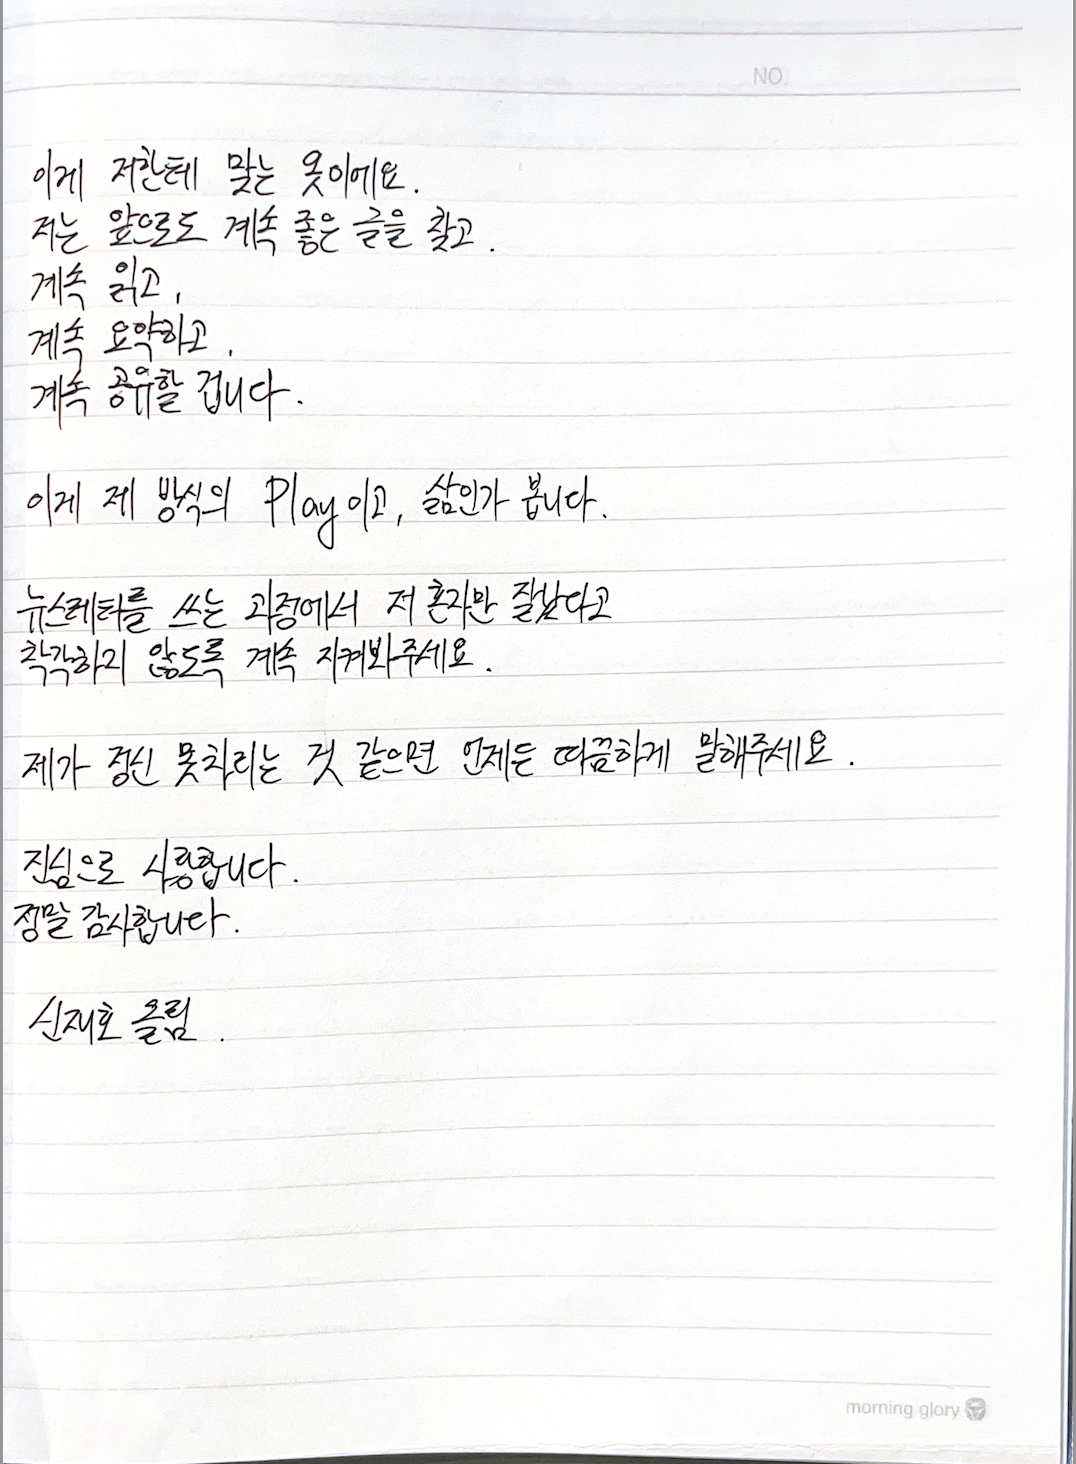 NO.
이게 저한테 맞는 옷이에요.
저는 앞으로도 계속 좋은 글을 찾고.
계속 읽고,
계속 요약하고,
계속 공유할 겁니다.
이게 제 방식의 Play이고, 삶인가 봅니다.
뉴스레터를 쓰는 과정에서 저 혼자만 잘났다고
착각하지 않도록 계속 지켜봐주세요.
제가 정신 못차리는 것 같으면 언제든 따끔하게 말해주세요.
진심으로 사랑합니다.
정말 감사합니다.
신재호 올림.
morning glory